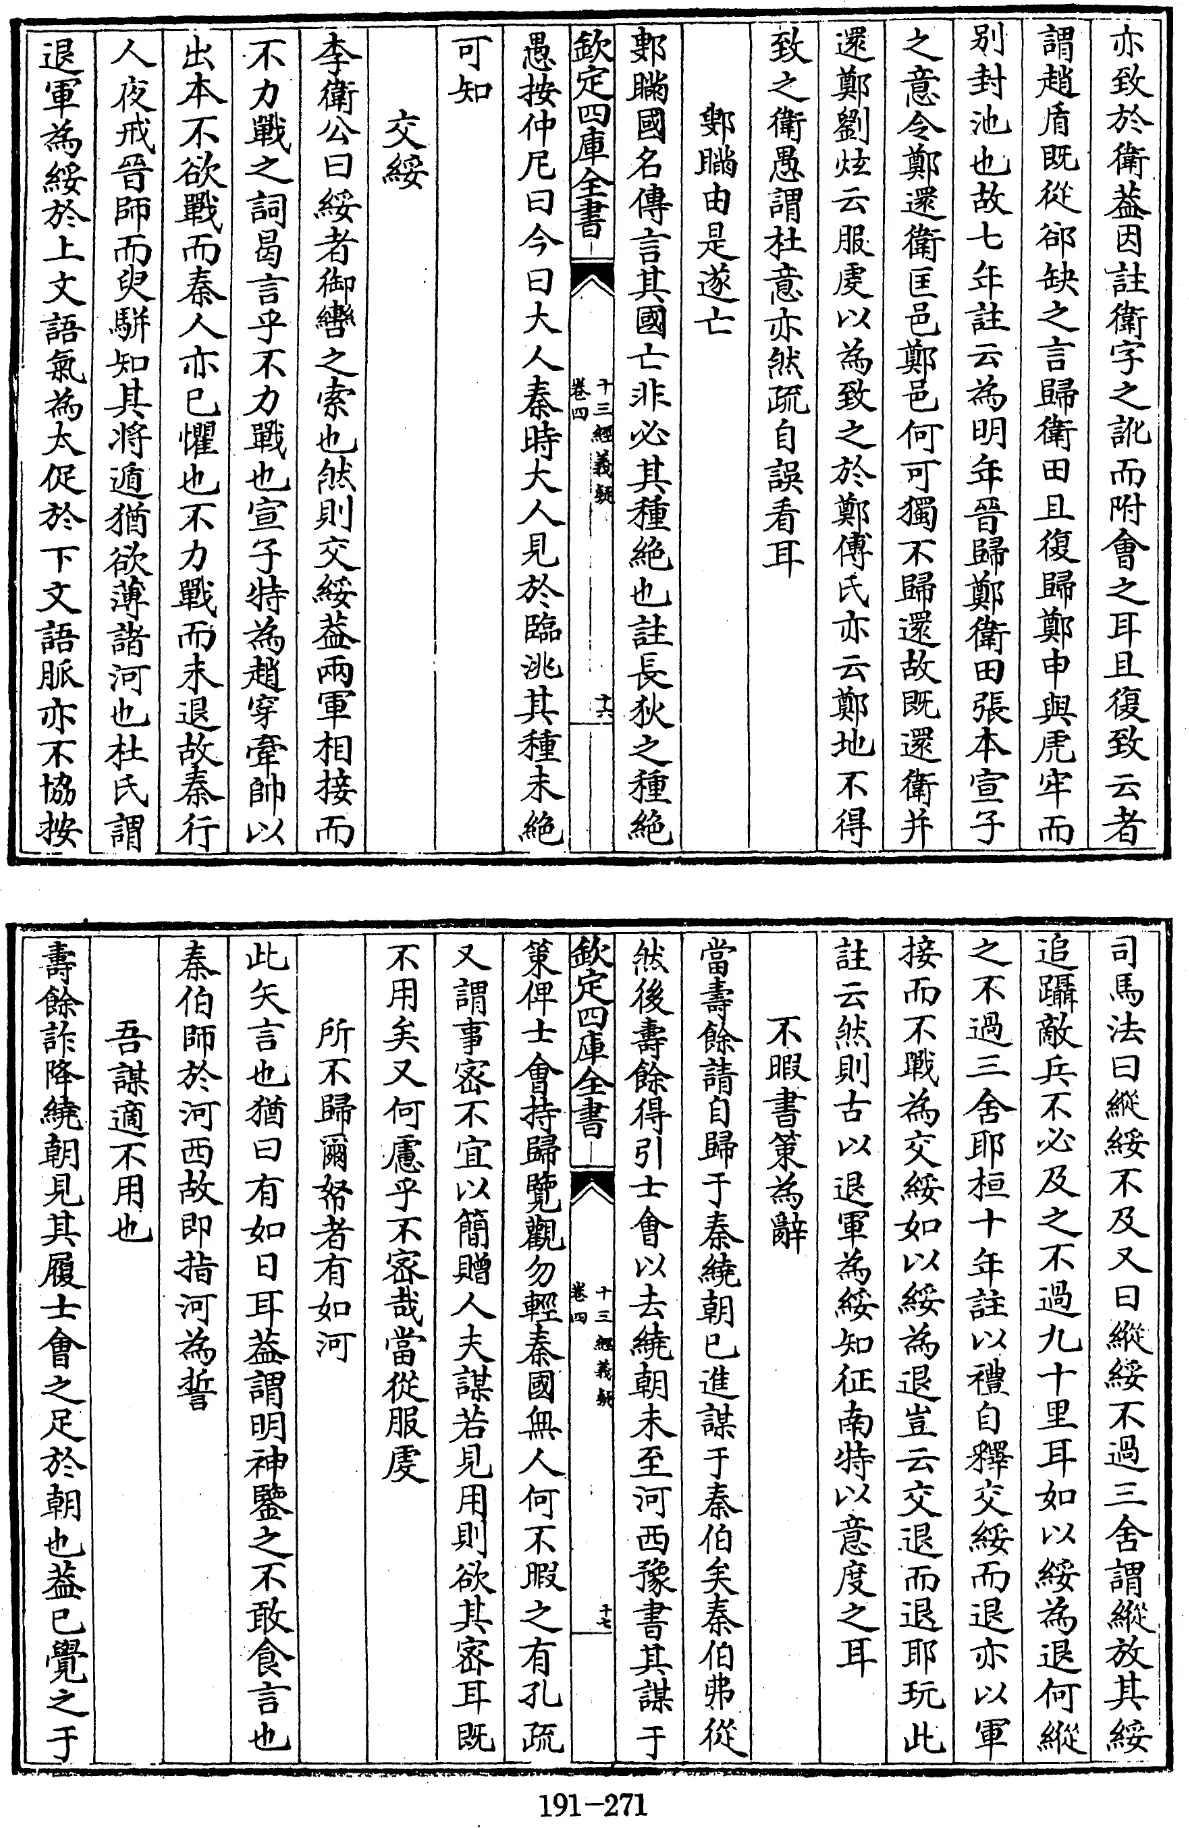 亦致於衛葢因註衛字之訛而附會之耳且復致云者
謂趙盾既從郤缺之言歸衛田且復歸鄭申與虎牢而
別封池也故七年註云為明年晉歸鄭衛田張本宣子
之意令鄭還衛匡邑鄭邑何可獨不歸還故既還衛并
還鄭劉炫云服虔以為致之於鄭傅氏亦云鄭地不得
致之衛愚謂杜意亦然疏自誤看耳
鄋瞞由是遂亡
鄋瞞國名傳言其國亡非必其種絶也註長狄之種絶
欽定四庫全書
十三經義疑
卷四
十六
愚按仲尼曰今曰大人秦時大人見於臨洮其種未絶
可知
交綏
李衛公曰綏者御轡之索也然則交綏葢兩軍相接而
不力戰之詞曷言乎不力戰也宣子特為趙穿牽帥以
出本不欲戰而秦人亦已懼也不力戰而未退故秦行
人夜戒晉師而臾駢知其将遁猶欲薄諸河也杜氏謂
退軍為綏於上文語氣為太促於下文語脈亦不協按
司馬法曰縱綏不及又曰縱綏不過三舍謂縱放其綏
追躡敵兵不必及之不過九十里耳如以綏為退何縱
之不過三舍耶桓十年註以禮自釋交綏而退亦以軍
接而不戰為交綏如以綏為退豈云交退而退耶玩此
註云然則古以退軍為綏知征南特以意度之耳
不暇書策為辭
當壽餘請自歸于秦繞朝已進謀于秦伯矣秦伯弗從
然後壽餘得引士會以去繞朝未至河西豫書其謀于
欽定四庫全書
十三經義疑
卷四
十七
策俾士會持歸覽觀勿輕秦國無人何不暇之有孔疏
又謂事宻不宜以簡贈人夫謀若見用則欲其宻耳既
不用矣又何慮乎不宻哉當從服虔
所不歸爾帑者有如河
此矢言也猶曰有如日耳葢謂明神鑒之不敢食言也
秦伯師於河西故即指河為誓
吾謀適不用也
壽餘詐降繞朝見其履士會之足於朝也葢已覺之于
191-271